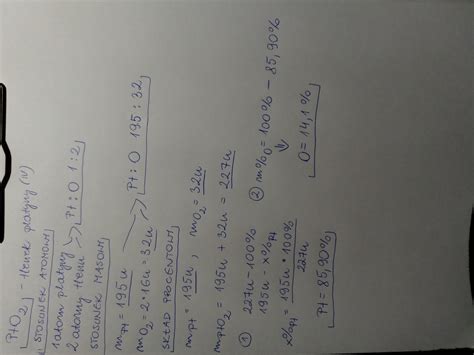 PtO2 - tlenek platyny (IV)
STOSUNEK ATOMOWY
1 atom platyny
2 atomy tlenu
Pt : O 1 : 2
STOSUNEK MASOWY
mPt = 195u
mO2 = 2 · 16u = 32u
Pt : O 195 : 32
SKŁAD PROCENTOWY
mPt = 195u , mO2 = 32u
mPtO2 = 195u + 32u = 227u
① 227u - 100%
195u - x%Pt
%Pt = 195u · 100%
227u
Pt = 85,90%
② m%O = 100% - 85,90%
O = 14,1%